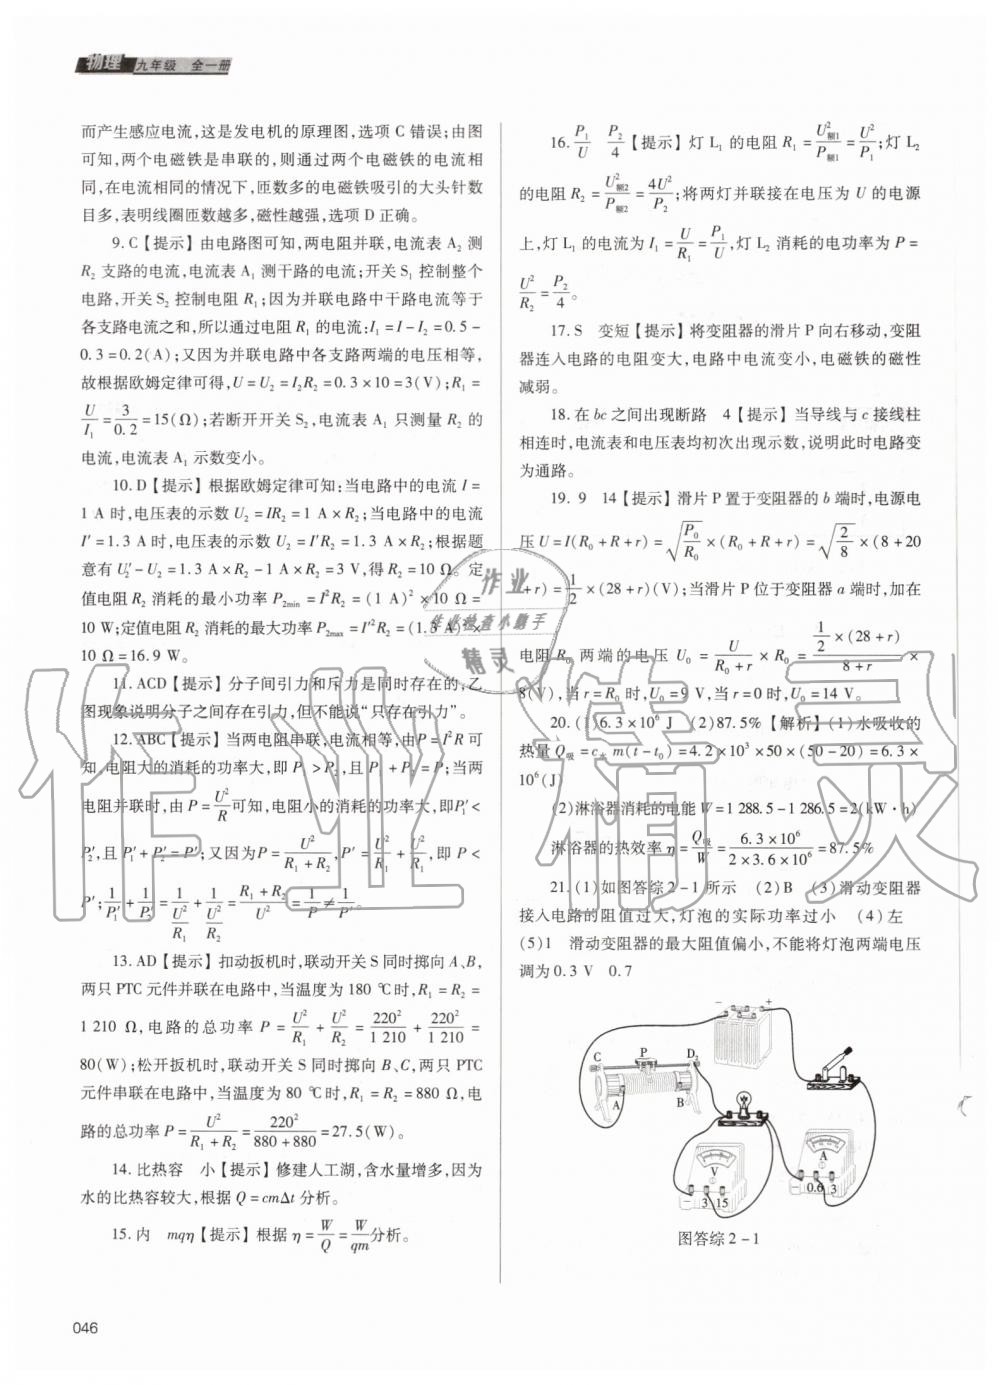 物理 九年级 全一册
而产生感应电流,这是发电机的原理图,选项 C 错误;由图
可知,两个电磁铁是串联的,则通过两个电磁铁的电流相
同,在电流相同的情况下,匝数多的电磁铁吸引的大头针数
目多,表明线圈匝数越多,磁性越强,选项 D 正确。
9. C【提示】由电路图可知,两电阻并联,电流表 A₂ 测
R₂ 支路的电流,电流表 A₁ 测干路的电流;开关 S₁ 控制整个
电路,开关 S₂ 控制电阻 R₁;因为并联电路中干路电流等于
各支路电流之和,所以通过电阻 R₁ 的电流:I₁=I-I₂=0.5-
0.3=0.2(A);又因为并联电路中各支路两端的电压相等,
故根据欧姆定律可得,U=U₂=I₂R₂=0.3×10=3(V);R₁=
U/I₁=3/0.2=15(Ω);若断开开关 S₂,电流表 A₁ 只测量 R₂ 的
电流,电流表 A₁ 示数变小。
10. D【提示】根据欧姆定律可知:当电路中的电流 I=
1 A 时,电压表的示数 U₂=IR₂=1 A×R₂;当电路中的电流
I′=1.3 A 时,电压表的示数 U₂=I′R₂=1.3 A×R₂;根据题
意有 U₂′-U₂=1.3 A×R₂-1 A×R₂=3 V,得 R₂=10 Ω。定
值电阻 R₂ 消耗的最小功率 P₂min=I²R₂=(1 A)²×10 Ω=
10 W;定值电阻 R₂ 消耗的最大功率 P₂max=I′²R₂=(1.3 A)²×
10 Ω=16.9 W。
11. ACD【提示】分子间引力和斥力是同时存在的,乙
图现象说明分子之间存在引力,但不能说“只存在引力”。
12. ABC【提示】当两电阻串联,电流相等,由 P=I²R 可
知,电阻大的消耗的功率大,即 P₁>P₂,且 P₁+P₂=P;当两
电阻并联时,由 P=U²/R 可知,电阻小的消耗的功率大,即 P₁′<
P₂′,且 P₁′+P₂′=P′;又因为 P=U²/(R₁+R₂),P′=U²/R₁+U²/R₂,即 P<
P′;1/P₁′+1/P₂′=1/(U²/R₁)+1/(U²/R₂)=(R₁+R₂)/U²=1/P≠1/P′。
13. AD【提示】扣动扳机时,联动开关 S 同时掷向 A、B,
两只 PTC 元件并联在电路中,当温度为 180 ℃时,R₁=R₂=
1 210 Ω,电路的总功率 P=U²/R₁+U²/R₂=220²/1 210+220²/1 210=
80(W);松开扳机时,联动开关 S 同时掷向 B、C,两只 PTC
元件串联在电路中,当温度为 80 ℃时,R₁=R₂=880 Ω,电
路的总功率 P=U²/(R₁+R₂)=220²/(880+880)=27.5(W)。
14. 比热容 小【提示】修建人工湖,含水量增多,因为
水的比热容较大,根据 Q=cmΔt 分析。
15. 内 mqη【提示】根据 η=W/Q=W/qm分析。
16. P₁/U P₂/4【提示】灯 L₁ 的电阻 R₁=U²额1/P额1=U²/P₁;灯 L₂
的电阻 R₂=U²额2/P额2=4U²/P₂;将两灯并联接在电压为 U 的电源
上,灯 L₁ 的电流为 I₁=U/R₁=P₁/U,灯 L₂ 消耗的电功率为 P=
U²/R₂=P₂/4。
17. S 变短【提示】将变阻器的滑片 P 向右移动,变阻
器连入电路的电阻变大,电路中电流变小,电磁铁的磁性
减弱。
18. 在 bc 之间出现断路 4【提示】当导线与 c 接线柱
相连时,电流表和电压表均初次出现示数,说明此时电路变
为通路。
19. 9 14【提示】滑片 P 置于变阻器的 b 端时,电源电
压 U=I(R₀+R+r)=√(P₀/R₀)×(R₀+R+r)=√(2/8)×(8+20
+r)=1/2×(28+r)(V);当滑片 P 位于变阻器 a 端时,加在
电阻 R₀ 两端的电压 U₀=U/(R₀+r)×R₀=1/2×(28+r)/(8+r)×
8(V),当 r=R₀ 时,U₀=9 V,当 r=0 时,U₀=14 V。
20. (1)6.3×10⁶ J (2)87.5%【解析】(1)水吸收的
热量 Q吸=c水m(t-t₀)=4.2×10³×50×(50-20)=6.3×
10⁶(J)
(2)淋浴器消耗的电能 W=1 288.5-1 286.5=2(kW·h)
淋浴器的热效率 η=Q吸/W=6.3×10⁶/(2×3.6×10⁶)=87.5%
21. (1)如图答综 2-1 所示 (2)B (3)滑动变阻器
接入电路的阻值过大,灯泡的实际功率过小 (4)左
(5)1 滑动变阻器的最大阻值偏小,不能将灯泡两端电压
调为 0.3 V 0.7
- +
C P D
A B
V
- 3 15
A
- 0.6 3
图答综 2-1
046
作业
作业检查小助手
精灵
作业精灵